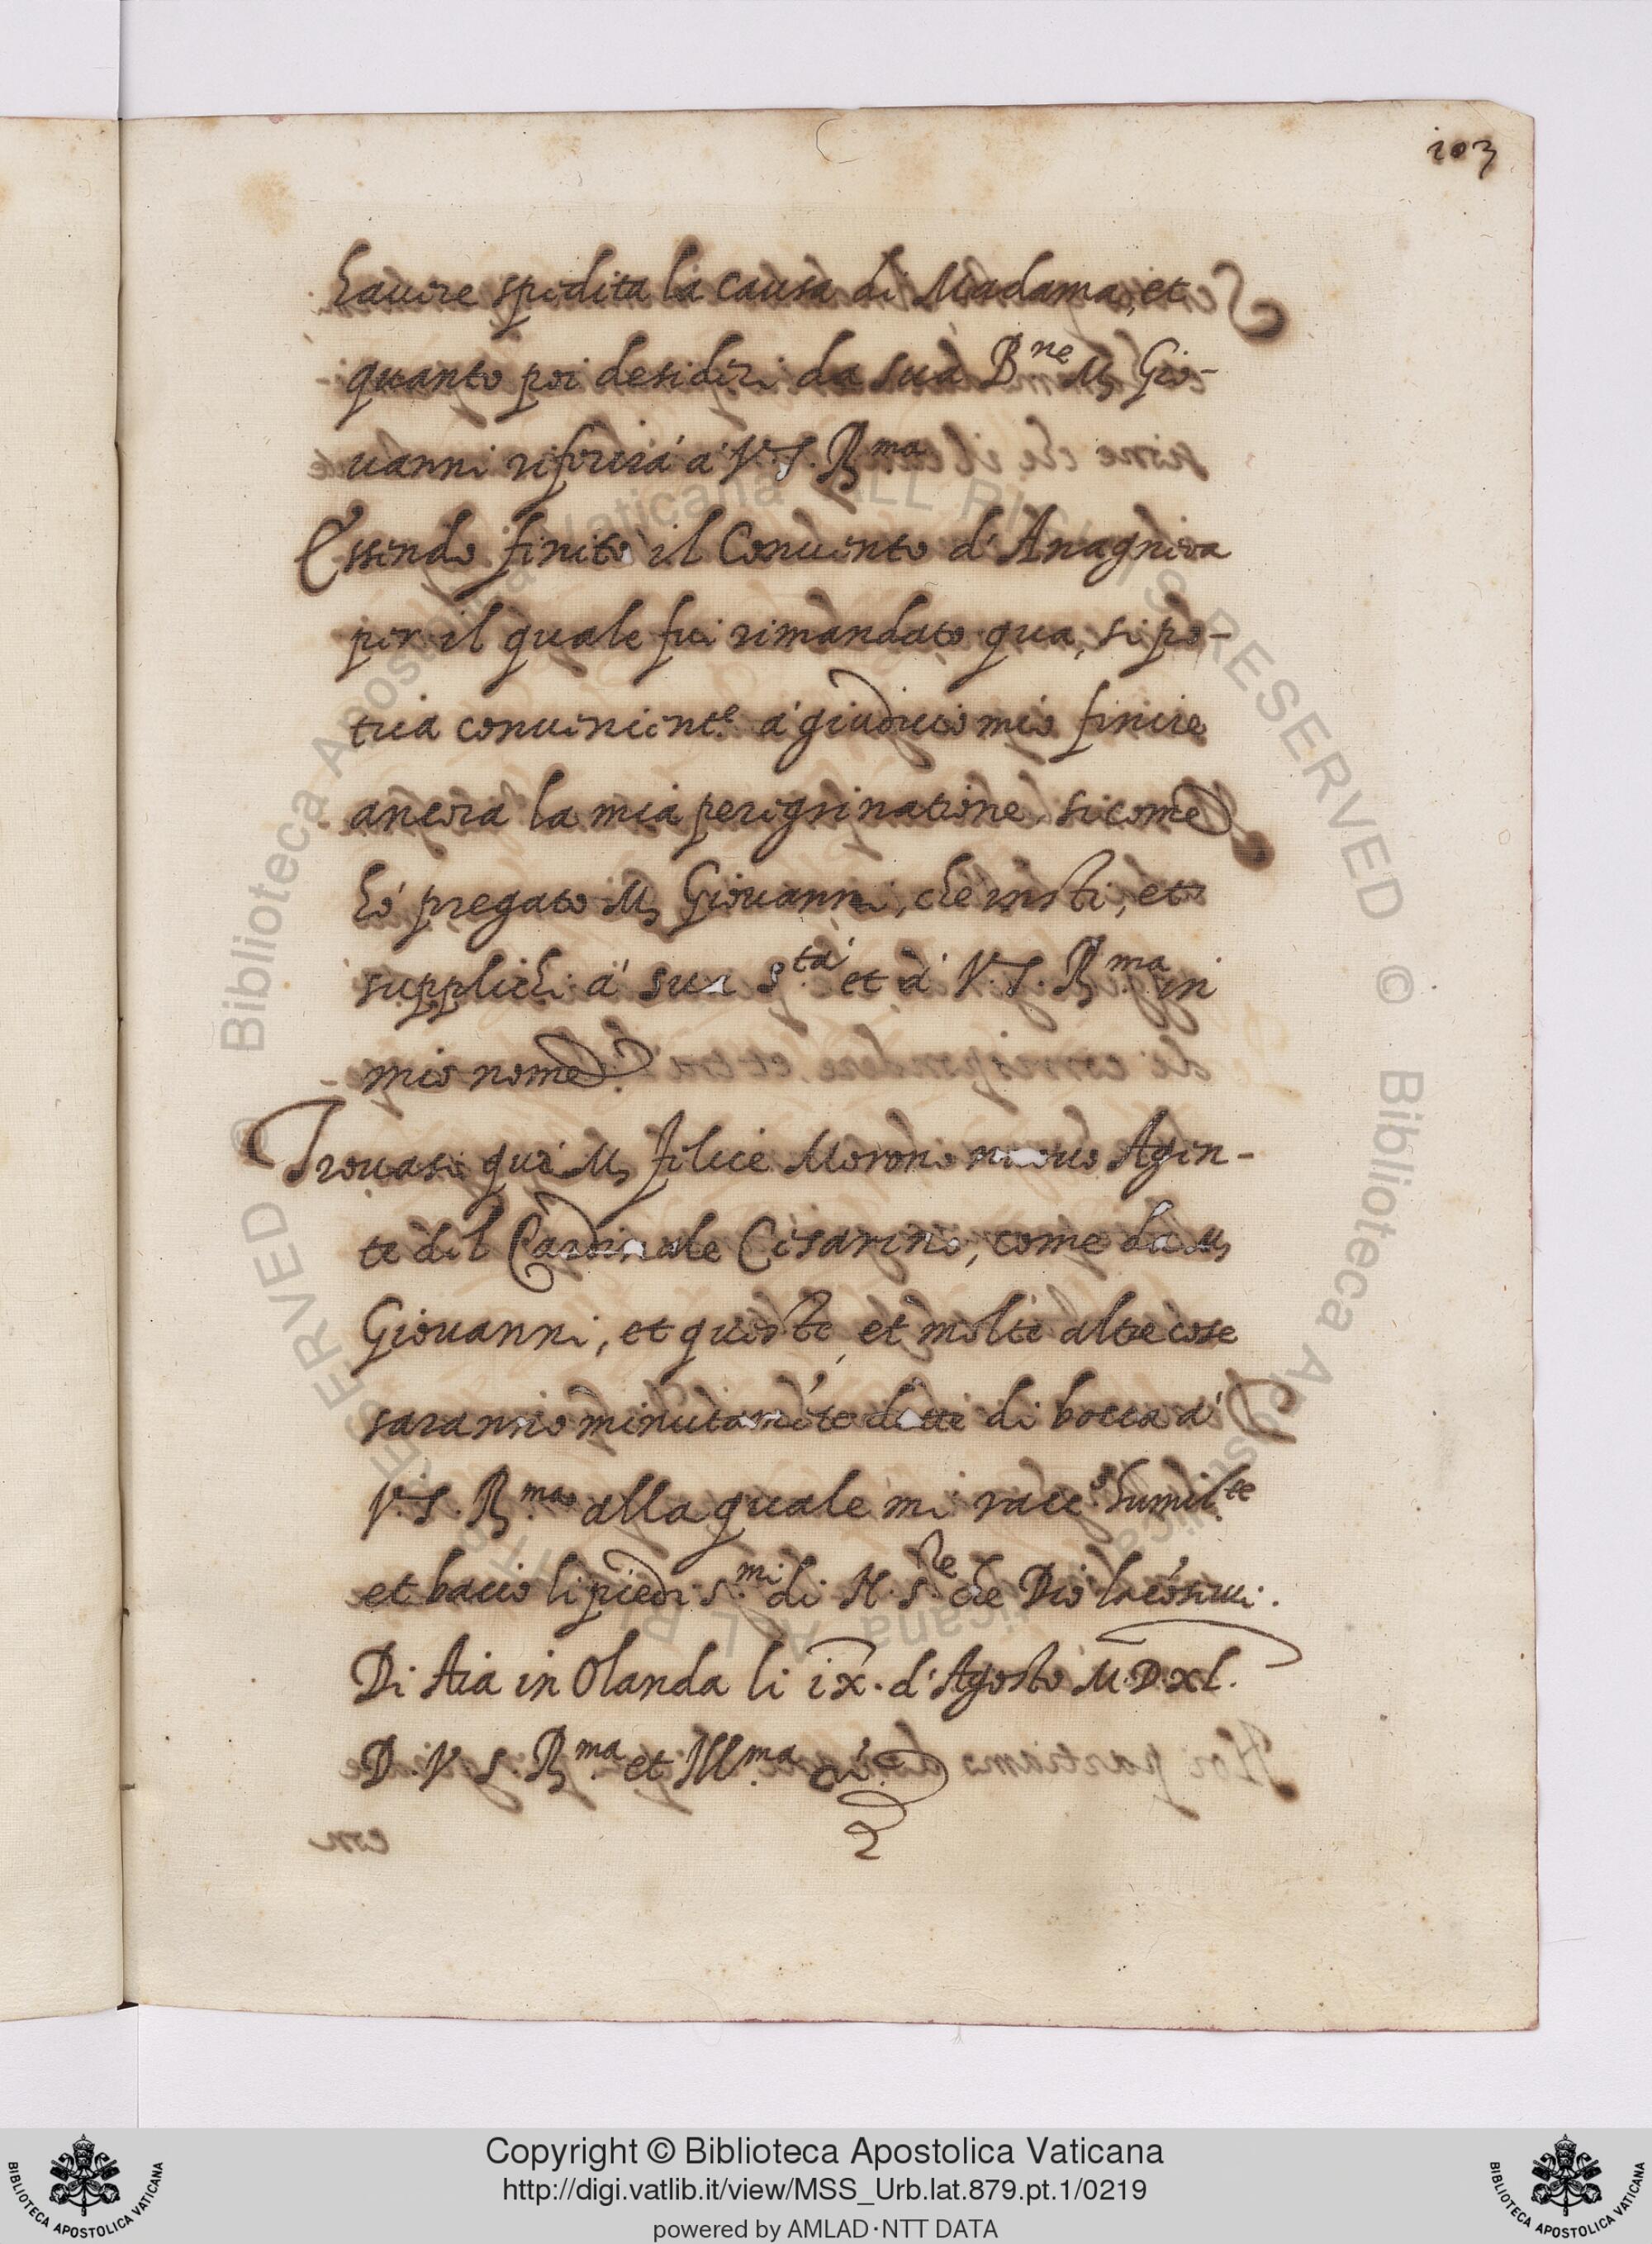 103
havere spedita la causa di Madama, et
quanto poi desideri da sua B.ne M. Gio-
vanni riferirá á V. S. R.ma
Essendo finito il Convento d'Anagnioa
per il quale fui rimandato qua, si po-
tria convenient.e á giudicio mio finire
ancora la mia peregrinatione sicome
hó pregato M. Giovanni, che insti, et
supplichi á sua S.tá et á V. S. R.ma in
mio nome.
Trovasi quì M. Felice Morone nuovo Agen-
te del Cardinale Cesarino, come da M.
Giovanni, et queste, et molte altre cose
saranno minutamẽte dette di bocca á
V. S. R.ma alla quale mi racc.o humil.te
et bacio li piedi s.mi di N. S.re che Dio la cõservi.
Di Aia in Olanda li ix. d'Agosto M.D.XL.
D. V. S. R.ma et Ill.ma
Copyright © Biblioteca Apostolica Vaticana
http://digi.vatlib.it/view/MSS_Urb.lat.879.pt.1/0219
powered by AMLAD·NTT DATA
BIBLIOTECA APOSTOLICA VATICANA
BIBLIOTECA APOSTOLICA VATICANA